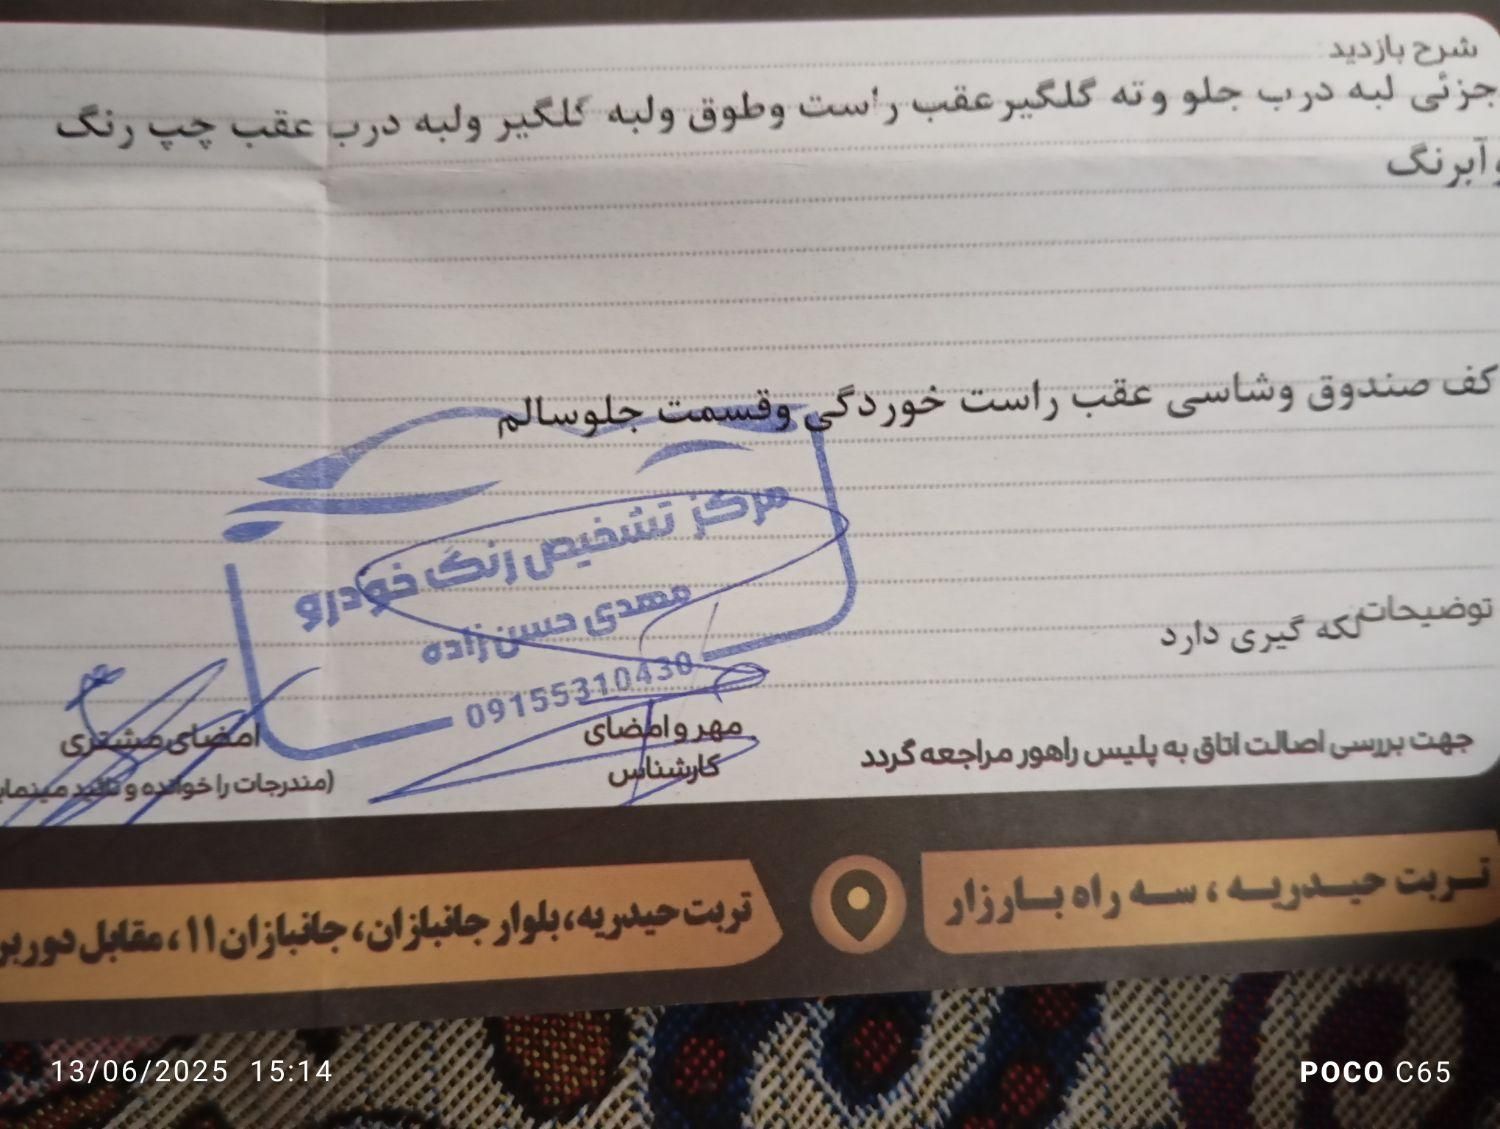 شرح بازدید
جزئی لبه درب جلو وته گلگیرعقب راست وطوق ولبه گلگیر ولبه درب عقب چپ رنگ
وآبرنگ
کف صندوق وشاسی عقب راست خوردگی وقسمت جلوسالم
مرکز تشخیص رنگ خودرو
مهدی حسن زاده
09155310430
توضیحات لکه گیری دارد
جهت بررسی اصالت اتاق به پلیس راهور مراجعه گردد
مهر و امضای
کارشناس
امضای مشتری
(مندرجات را خوانده و تائید
تربت حیدریه ، سه راه بارزار
تربت حیدریه، بلوار جانبازان، جانبازان ۱۱، مقابل
13/06/2025 15:14
POCO C65